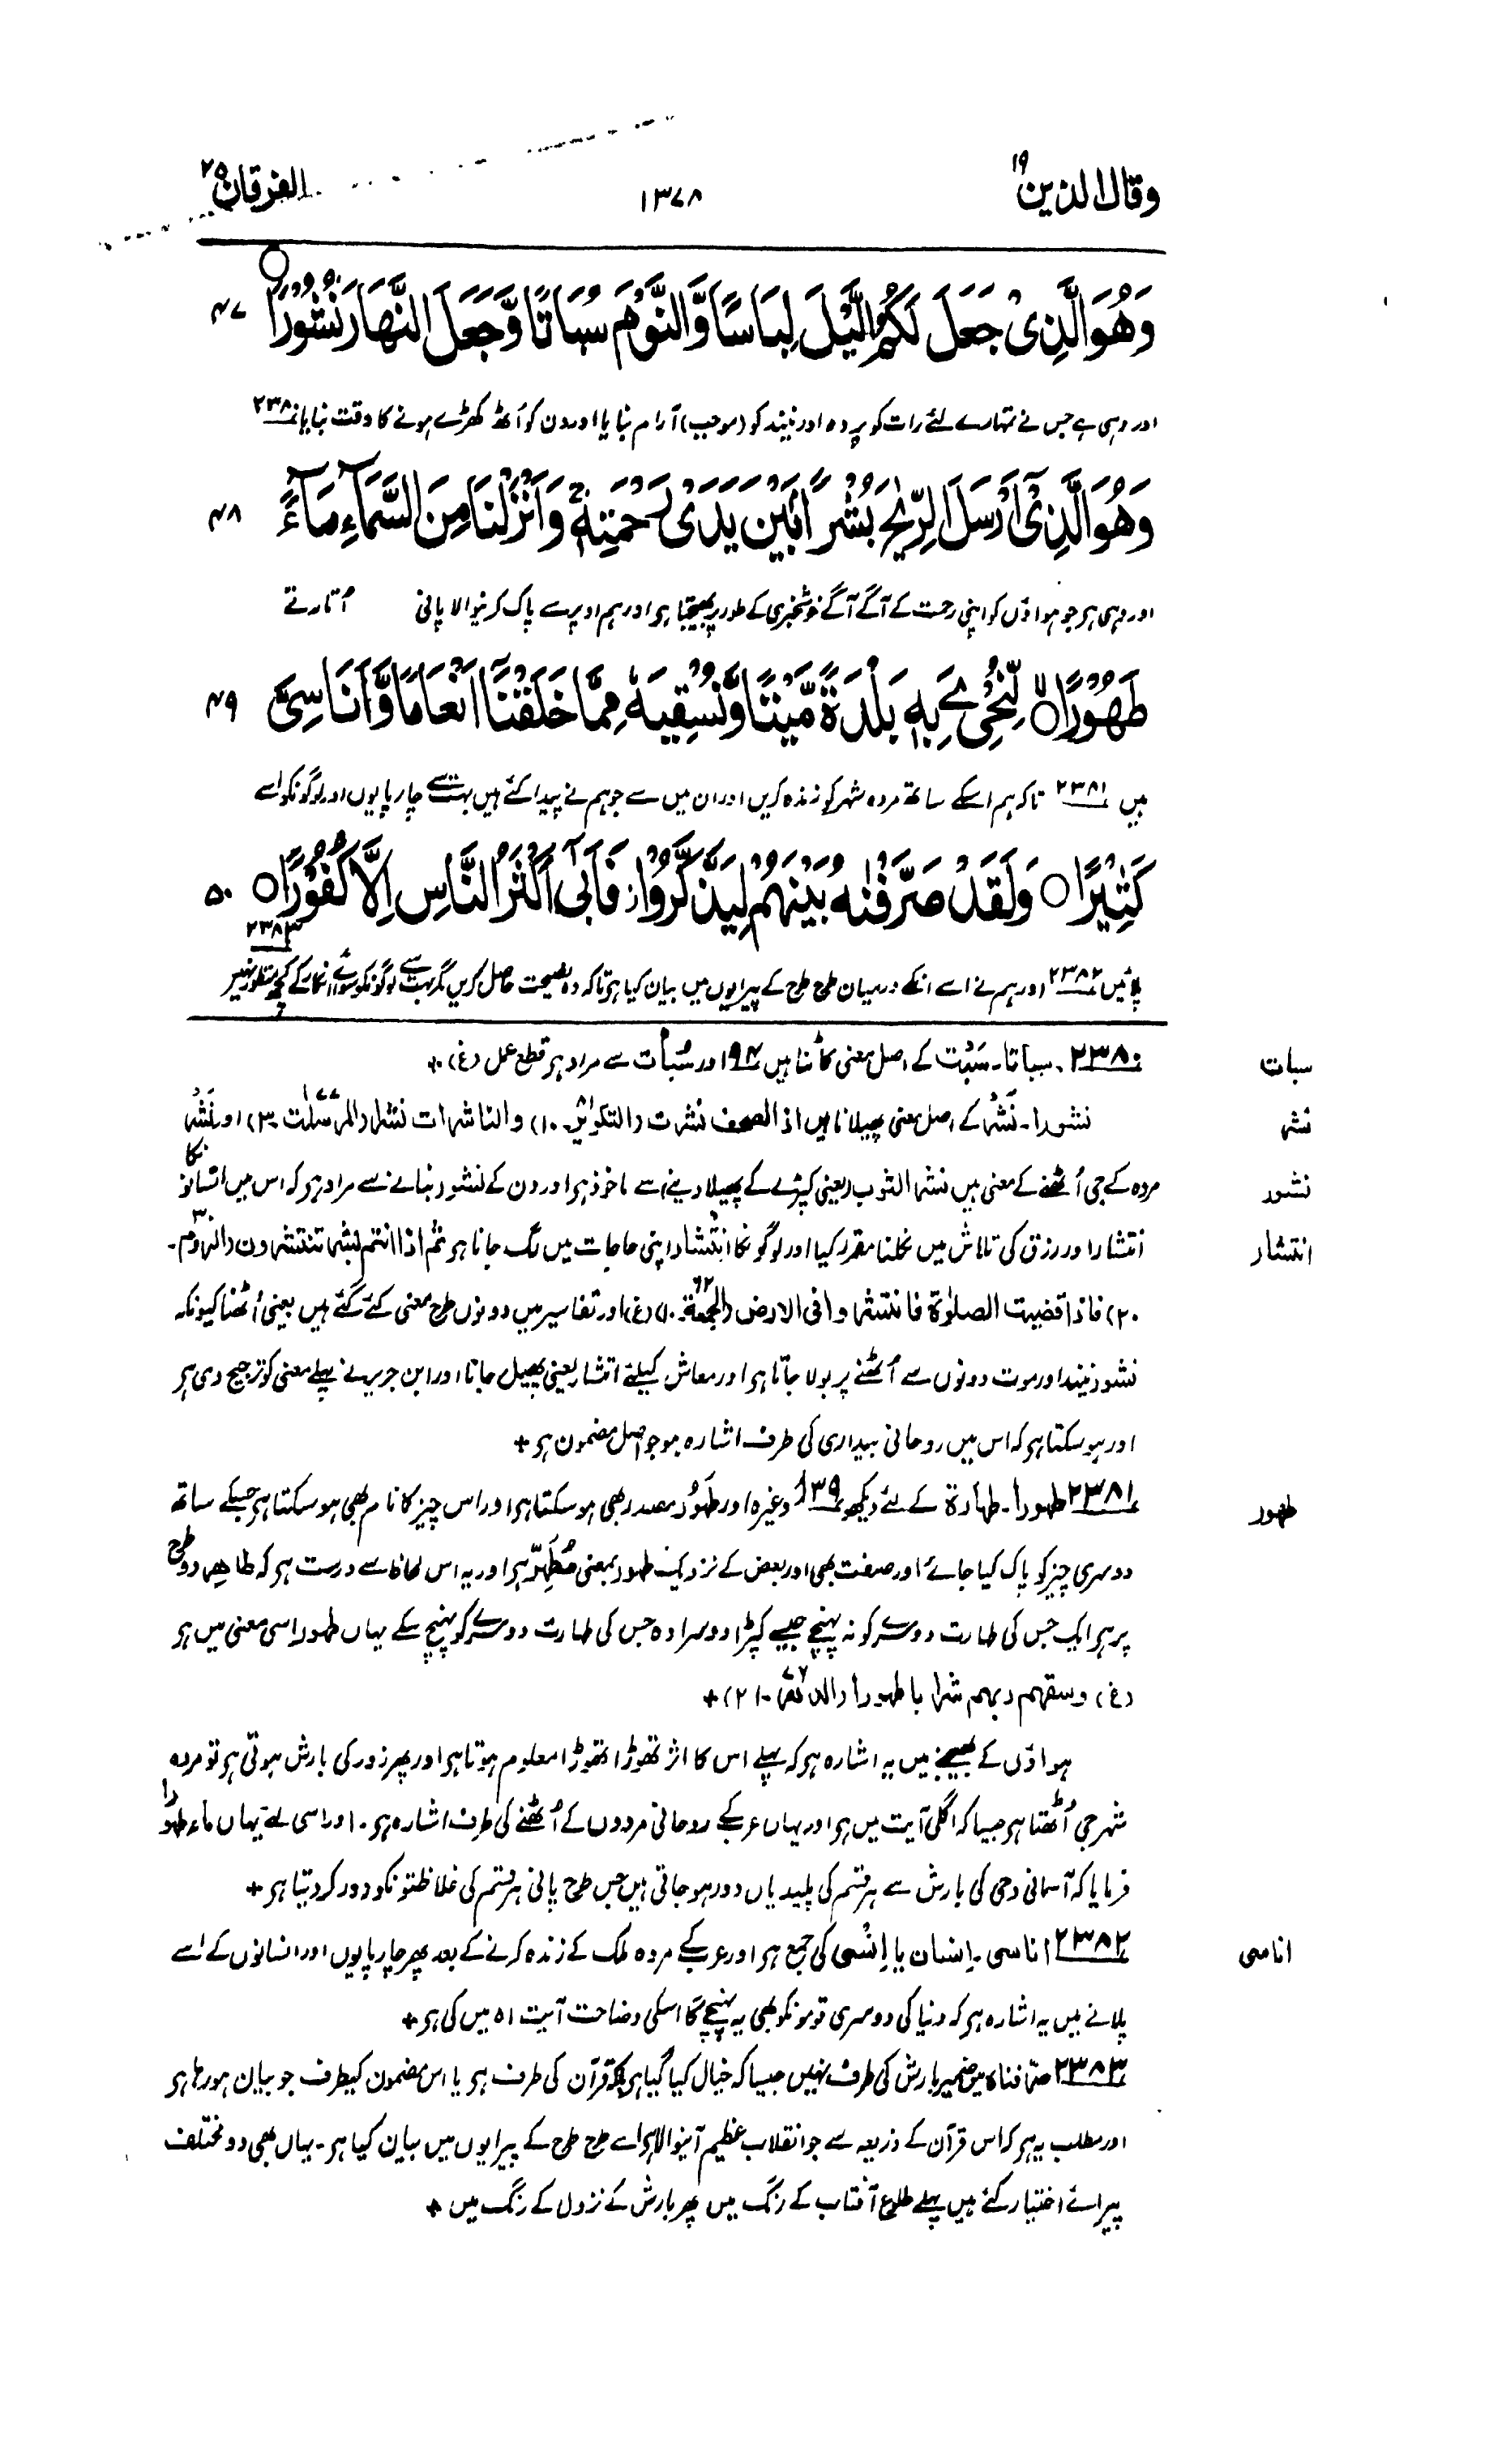 وقال الذین ۱۹ ۱۳۷۸ الفرقان ۲۵
وَهُوَ الَّذِیْ جَعَلَ لَكُمُ الَّیْلَ لِبَاسًا وَّالنَّوْمَ سُبَاتًا وَّجَعَلَ النَّهَارَ نُشُوْرًا ○ ۴۷
اور وہی ہے جس نے تمہارے لئے رات کو پردہ اور نیند کو (موجب) آرام بنایا اور دن کو اُٹھ کھڑے ہونے کا وقت بنایا ۲۳۸۰
وَهُوَ الَّذِیْۤ اَرْسَلَ الرِّیٰحَ بُشْرًۢا بَیْنَ یَدَیْ رَحْمَتِهٖ ۚ وَاَنْزَلْنَا مِنَ السَّمَآءِ مَآءً ۴۸
اور وہی ہر جو ہواؤں کو اپنی رحمت کے آگے آگے خوشخبری کے طور پر بھیجتا ہر اور ہم اوپر سے پاک کرنیوالا پانی اُتارتے
طَهُوْرًا ○ لِّنُحْیِۦَ بِهٖ بَلْدَةً مَّیْتًا وَّنُسْقِیَهٗ مِمَّا خَلَقْنَاۤ اَنْعَامًا وَّاَنَاسِیَّ ۴۹
ہیں ۲۳۸۱ تاکہ ہم اسکے ساتھ مردہ شہر کو زندہ کریں اور ان میں سے جو ہم نے پیدا کئے ہیں بہت سے چارپایوں اور لوگونکو اسے
كَثِیْرًا ○ وَلَقَدْ صَرَّفْنٰهُ بَیْنَهُمْ لِیَذَّكَّرُوْا ۖ فَاَبٰۤی اَكْثَرُ النَّاسِ اِلَّا كُفُوْرًا ○ ۵۰
پلائیں ۲۳۸۲ اور ہم نے اسے انکے درمیان طرح طرح کے پیرایوں میں بیان کیا ہر تاکہ وہ نصیحت حاصل کریں مگر بہت سے لوگونکو سوائے انکار کے کچھ منظور نہیں ۲۳۸۳
۲۳۸۰ ۔ سباتا۔ سَبْت کے اصل معنی کاٹنا ہیں ۹۴ اور سُبات سے مراد ہر قطع عمل (غ) + سبات
نشورا۔ نَشْر کے اصل معنی پھیلانا ہیں اذا الصحف نشرت (التکویر۔ ۱۰) والناشرات نشرا (المرسلٰت ۷۷۔ ۳) اور نَشْر نشر
مردہ کے جی اُٹھنے کے معنی میں نشر الثوب (یعنی کپڑے کے پھیلا دینے) سے ماخوذ ہر اور دن کے نشور بنانے سے مراد ہر کہ اس میں انسانونکا نشور
انتشار اور رزق کی تلاش میں نکلنا مقرر کیا اور لوگونکا انتشار اپنی حاجات میں لگ جانا ہر ثم اذا انتم بشر تنتشرون (الروم ۳۰۔ انتشار
۲۰) فاذا قضیت الصلوٰة فانتشروا فی الارض (الجمعة ۶۲۔ ۱۰) (غ) اور تفاسیر میں دونوں طرح معنی کئے گئے ہیں یعنی اُٹھنا کیونکہ
نشور نیند اور موت دونوں سے اُٹھنے پر بولا جاتا ہر اور معاش کیلئے انتشار یعنی پھیل جانا اور ابن جریر نے پہلے معنی کو ترجیح دی ہر
اور ہو سکتا ہر کہ اس میں روحانی بیداری کی طرف اشارہ ہو جو اصل مضمون ہر +
۲۳۸۱ طهورا۔ طهارة کے لئے دیکھو ۱۳۹ وغیرہ اور طَهُور مصدر بھی ہو سکتا ہر اور اس چیز کا نام بھی ہو سکتا ہر جسکے ساتھ طهور
دوسری چیز کو پاک کیا جائے اور صفت بھی اور بعض کے نزدیک طهور بمعنی مُطَهِّر ہر اور یہ اس لحاظ سے درست ہر کہ طاھر دو طرح
پر ہر ایک جس کی طہارت دوسرے کو نہ پہنچے جیسے کپڑا دوسرا وہ جس کی طہارت دوسرے کو پہنچ سکے یہاں طهور اسی معنی میں ہر
(غ) وسقهم ربهم شرابا طهورا (الدهر ۷۶۔ ۲۱) +
ہواؤں کے بھیجنے میں یہ اشارہ ہر کہ پہلے اس کا اثر تھوڑا تھوڑا معلوم ہوتا ہر اور پھر زور کی بارش ہوتی ہر تو مردہ
شہر جی اُٹھتا ہر جیسا کہ اگلی آیت میں ہر اور یہاں عرب کے روحانی مردوں کے اُٹھنے کی طرف اشارہ ہر۔ اور اسی لئے یہاں ماء طهورا
فرمایا کہ آسمانی وحی کی بارش سے ہر قسم کی پلیدیاں دور ہو جاتی ہیں جس طرح پانی ہر قسم کی غلاظتونکو دور کر دیتا ہر +
۲۳۸۲ اناسی۔ اِنسان یا اِنْسی کی جمع ہر اور عرب کے مردہ ملک کے زندہ کرنے کے بعد پھر چارپایوں اور انسانوں کے اسے اناسی
پلانے میں یہ اشارہ ہر کہ دنیا کی دوسری قومونکو بھی یہ پہنچے گا اسکی وضاحت آیت ۵۱ میں کی ہر +
۲۳۸۳ صرّفناہ میں ضمیر بارش کی طرف نہیں جیسا کہ خیال کیا گیا ہر بلکہ قرآن کی طرف ہر یا اس مضمون کیطرف جو بیان ہو رہا ہر
اور مطلب یہ ہر کہ اس قرآن کے ذریعہ سے جو انقلاب عظیم آنیوالا ہر اسے طرح طرح کے پیرایوں میں بیان کیا ہر۔ یہاں بھی دو مختلف
پیرائے اختیار کئے ہیں پہلے طلوع آفتاب کے رنگ میں پھر بارش کے نزول کے رنگ میں +